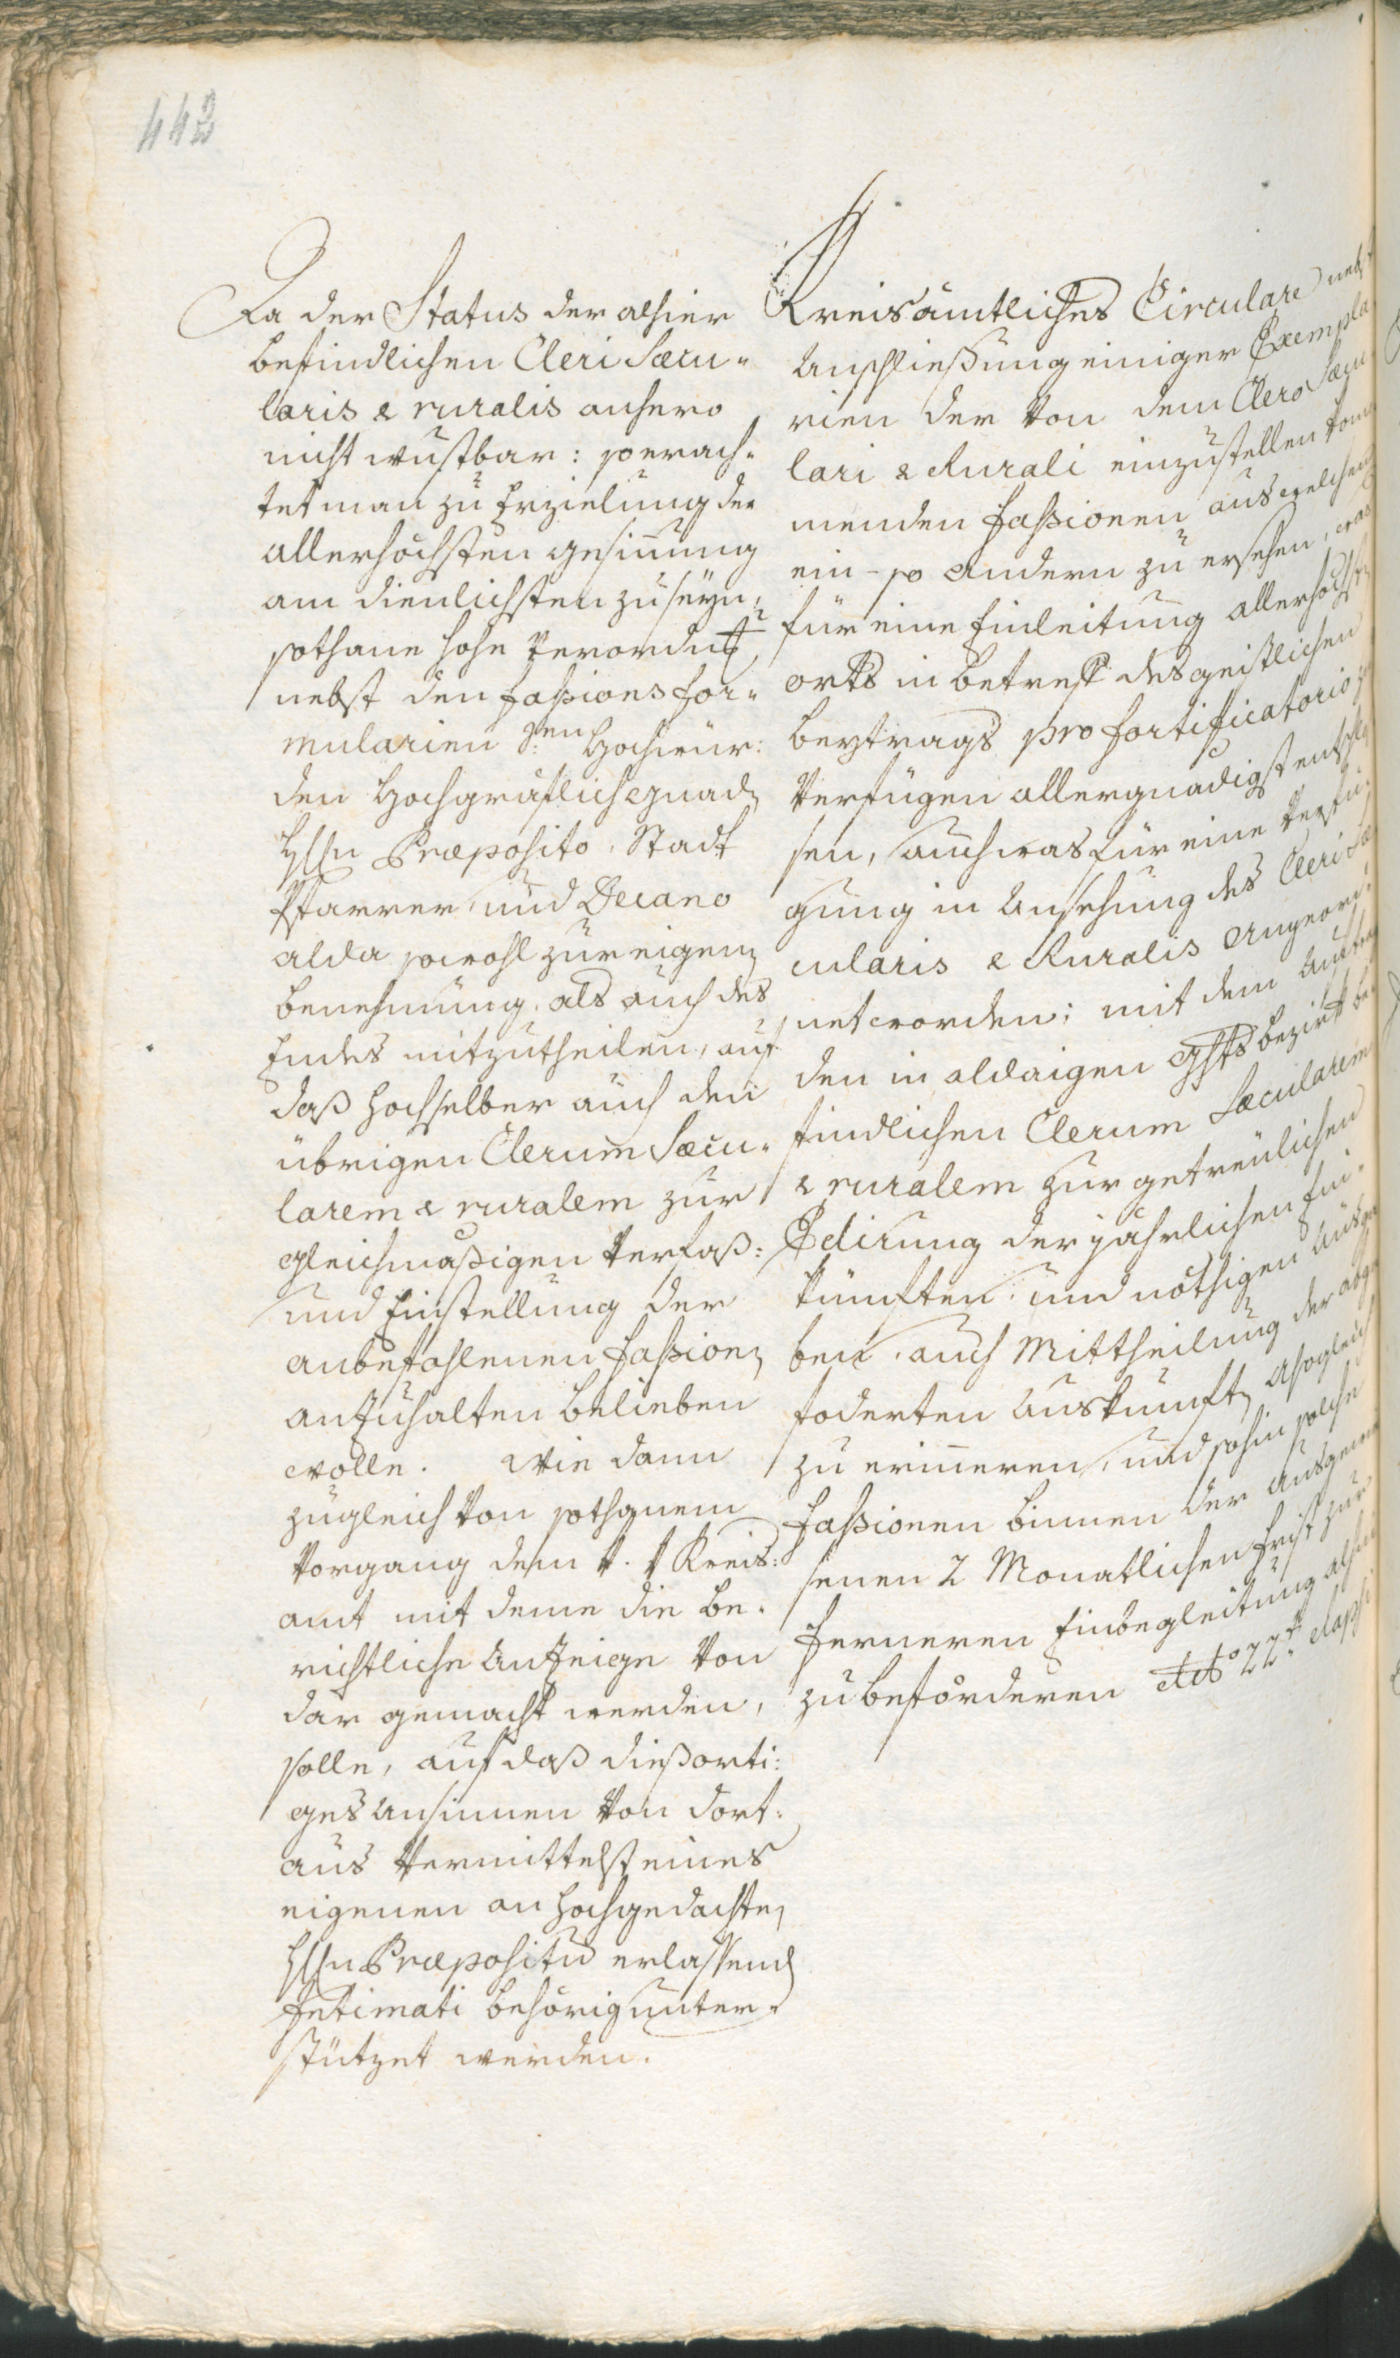 442
Da der Status der alhier
befindlichen Cleri Sæcu-
laris & ruralis anhero
nicht wustbar: so erach-
tet man zu Erzielung der
allerhöchsten gesinnung
am dienlichsten zu seyn,
sothane hohe Verordn̅g
nebst den fassions for-
mularien Sr. Hochwür:
den Hochgräflich Gnad
H̅n Præposito, Stadt
Pfarrer, und Decano
alda sowohl zur eigen
benehmung, als auch des
Endes mitzutheilen, auf
daß hochselber auch den
übrigen Clerum Sæcu-
larem & ruralem zur
gleichmäßigen Verfaß:
und Einstellung der
anbefohlenen fassion
anzuhalten belieben
wolle. Wie dann
zugleich von sothanem
Vorgang dem Kreis:
amt mit deme die be-
richtliche Anzeige von
dar gemacht werden,
solle, auf daß dießorti:
ges ansinnen von dort:
aus vermittelst eines
eigenen an hochgedachte
H̅n Præpositu erlassend
Intimati behörig unter-
stützet werden.
Kreisämtliches Circulare nebst
Anschließung einiger Exempla
rien der von dem Clero Sæcu
lari & Rurali einzustellen kom
menden fassionen aus welchen
ein- so anderen zu ersehen, was
für eine Einleitung allerhöchst
orts in betreff des geistlichen
beytrags pro fortificatorio zu
verfügen allergnädigst entschlos
sen, auch was für eine Verfü:
gung in Ansehung des Cleri Sæ
cularis & Ruralis angeord:
net worden; mit dem Auftrag
den in aldaigen bezirk be-
findlichen Clerum Sæcularem
& ruralem zur getreulichen
Edirung der jährlichen Ein-
künften: und nöthigen Ausga
ben, auch Mittheilung der abge
foderten Auskunft, alsogleich
zu erinneren, und sohin solche
fassionen binnen der ausgemes
senen 2 Monatlichen Frist zur
ferneren Einbegleitung alher
zu beförderen ddto 22t elapsi